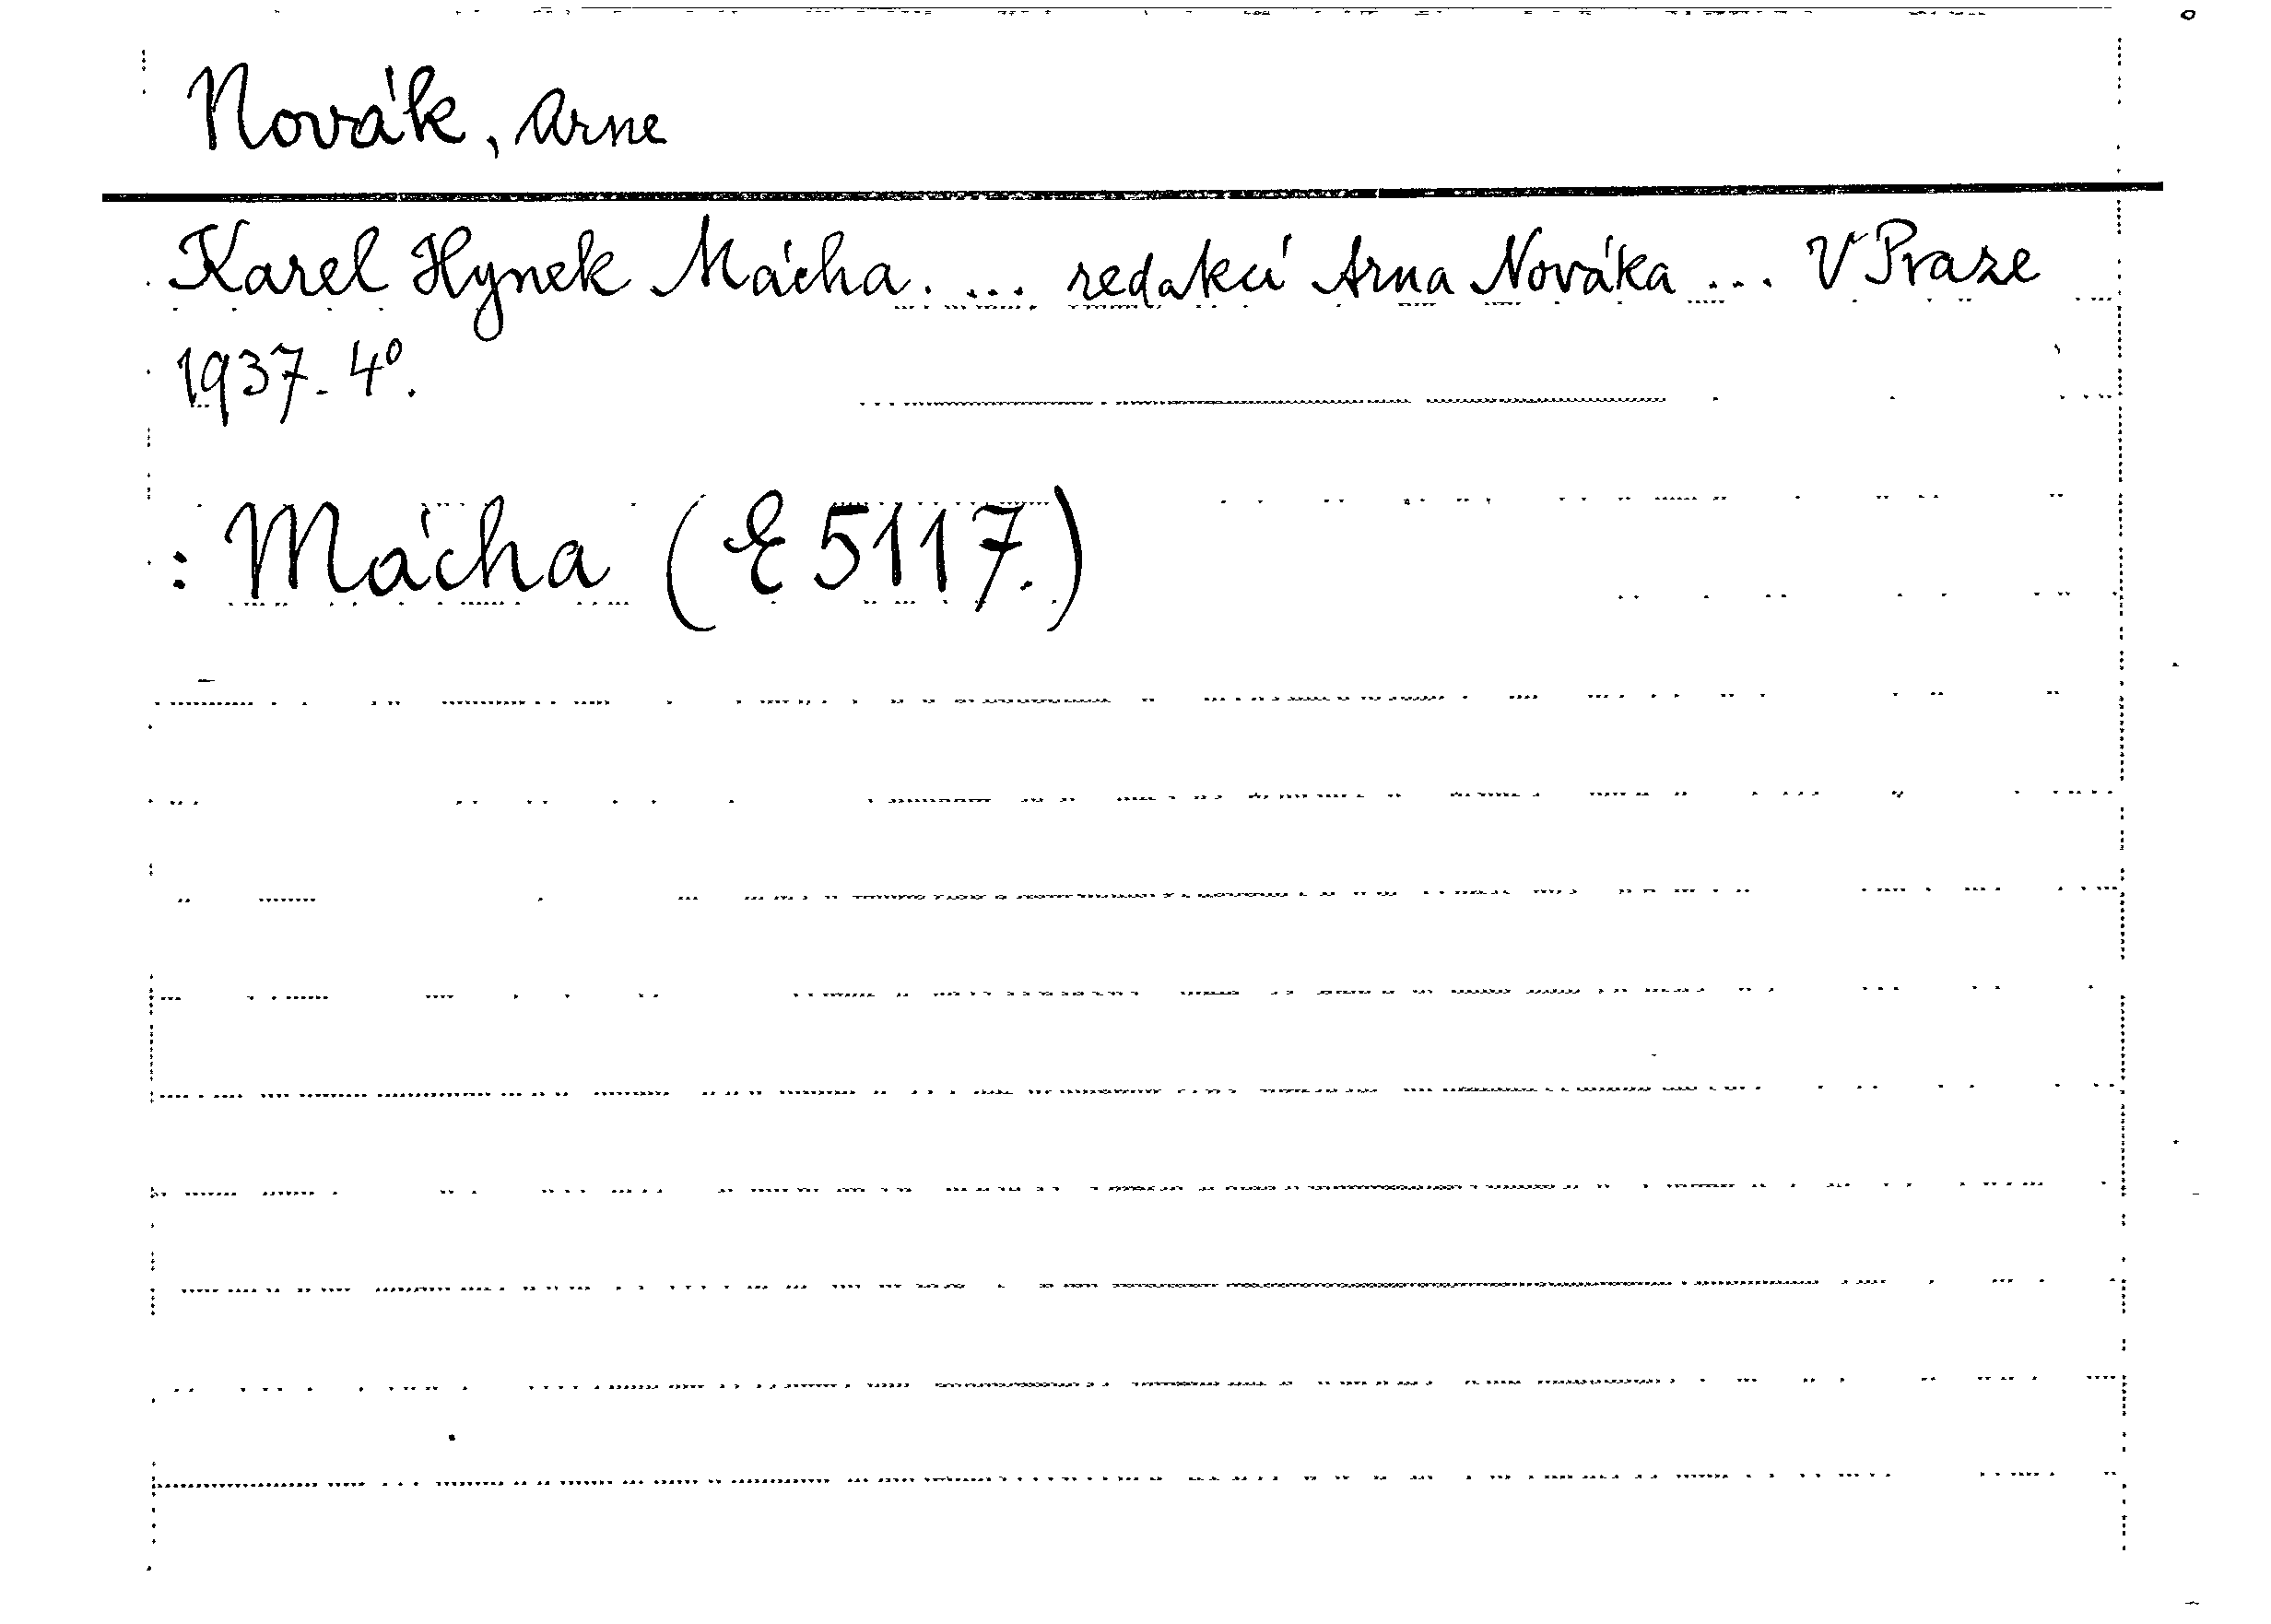 Novák, Arne
Karel Hynek Mácha. ... redakcí Arna Nováka ... V Praze
1937. 4º.
: Mácha (E 5117.)